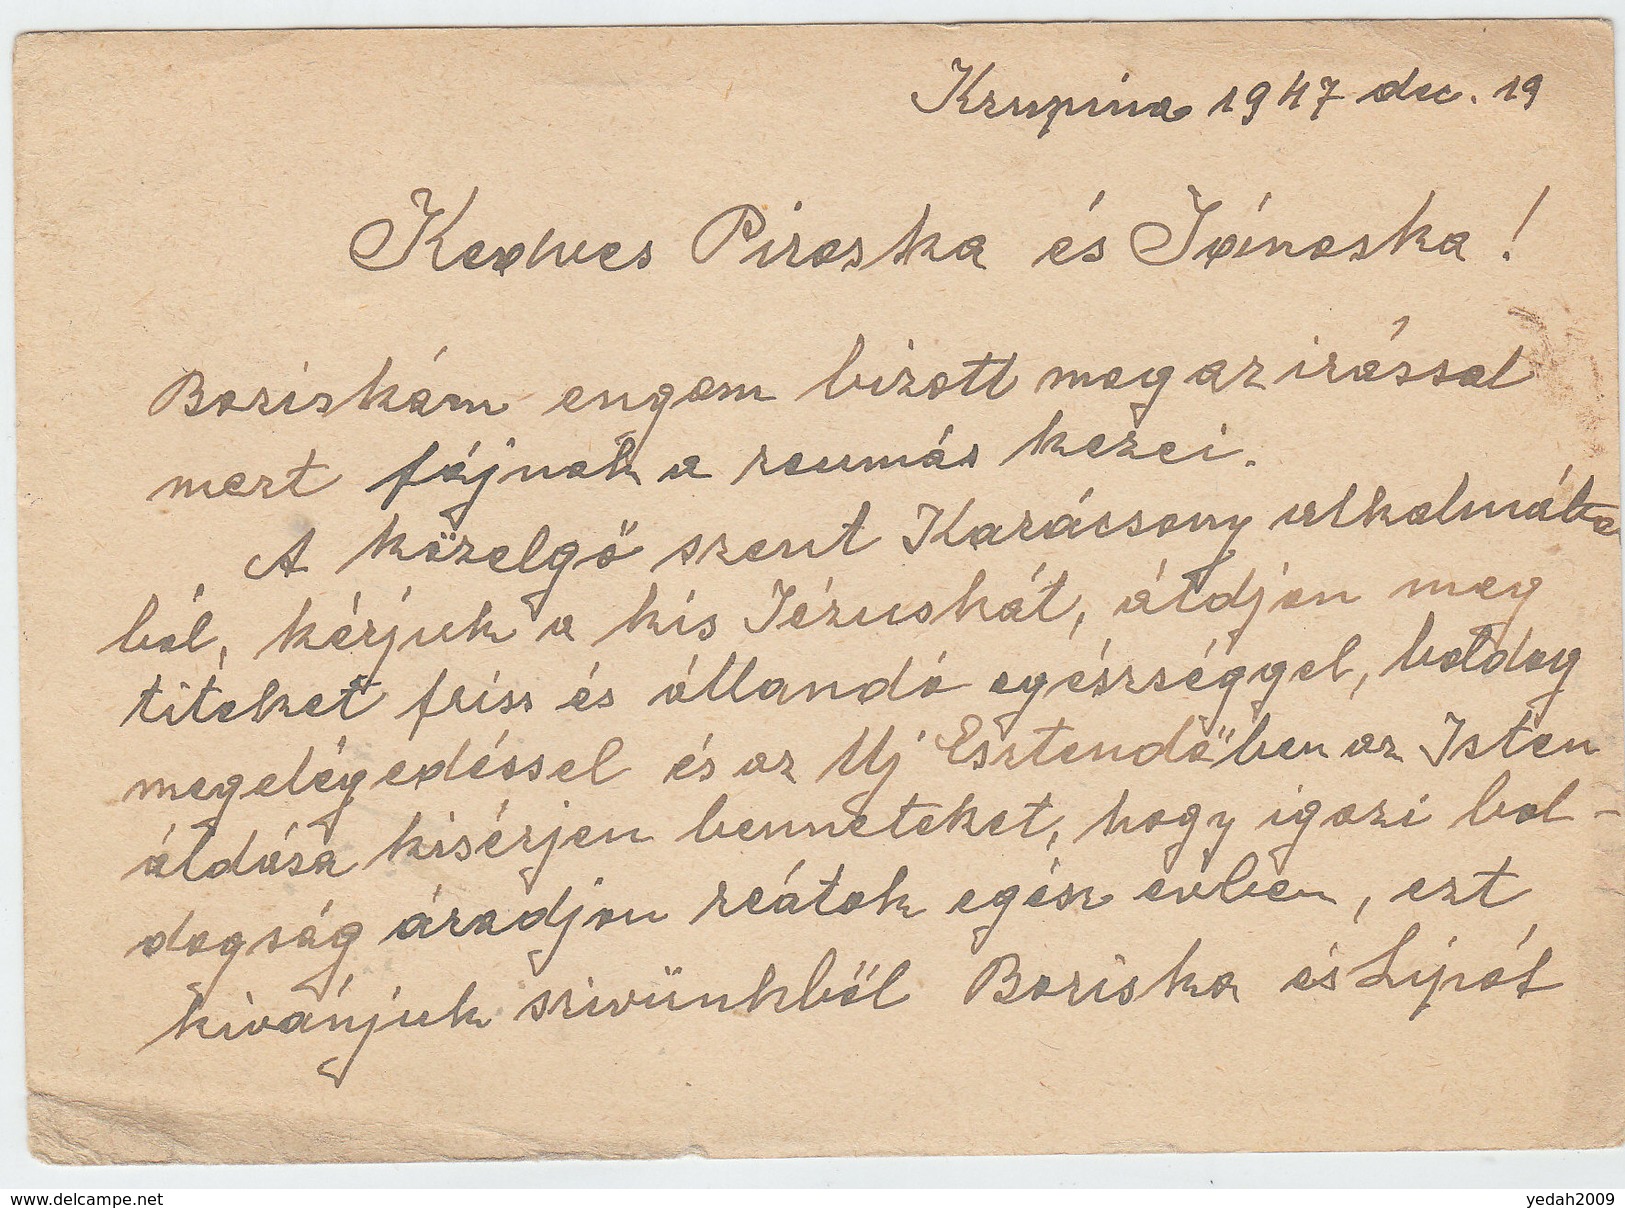 Krupina 1947 dec. 19
Kedves Piroska és Jánoska!
Boriskám engem bizott meg az irással
mert fájnak a reumás kezei.
A közelgő szent Karácsony alkalmába
ból, kérjük a kis Jézuskát, áldjon meg
titeket friss és állandó egészséggel, boldog
megelégedéssel és az Uj Esztendőben az Isten
áldása kisérjen benneteket, hogy igazi bol-
dogság áradjon reátok egész évben, ezt
kivánjuk szivünkből Boriska és Lipót
www.delcampe.net
yedah2009